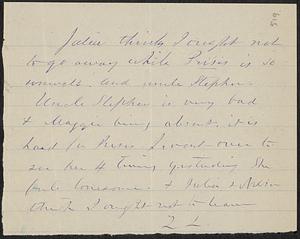 Julia thinks I ought not
to go away while Prisis is so
unwell. and uncle Stephen
Uncle Stephen is very bad
& Maggie being absent. it is
hard for Prisis I went over to
see her 4 times yesterday She
feels lonesome. & Julia &
think I ought not to leave
519